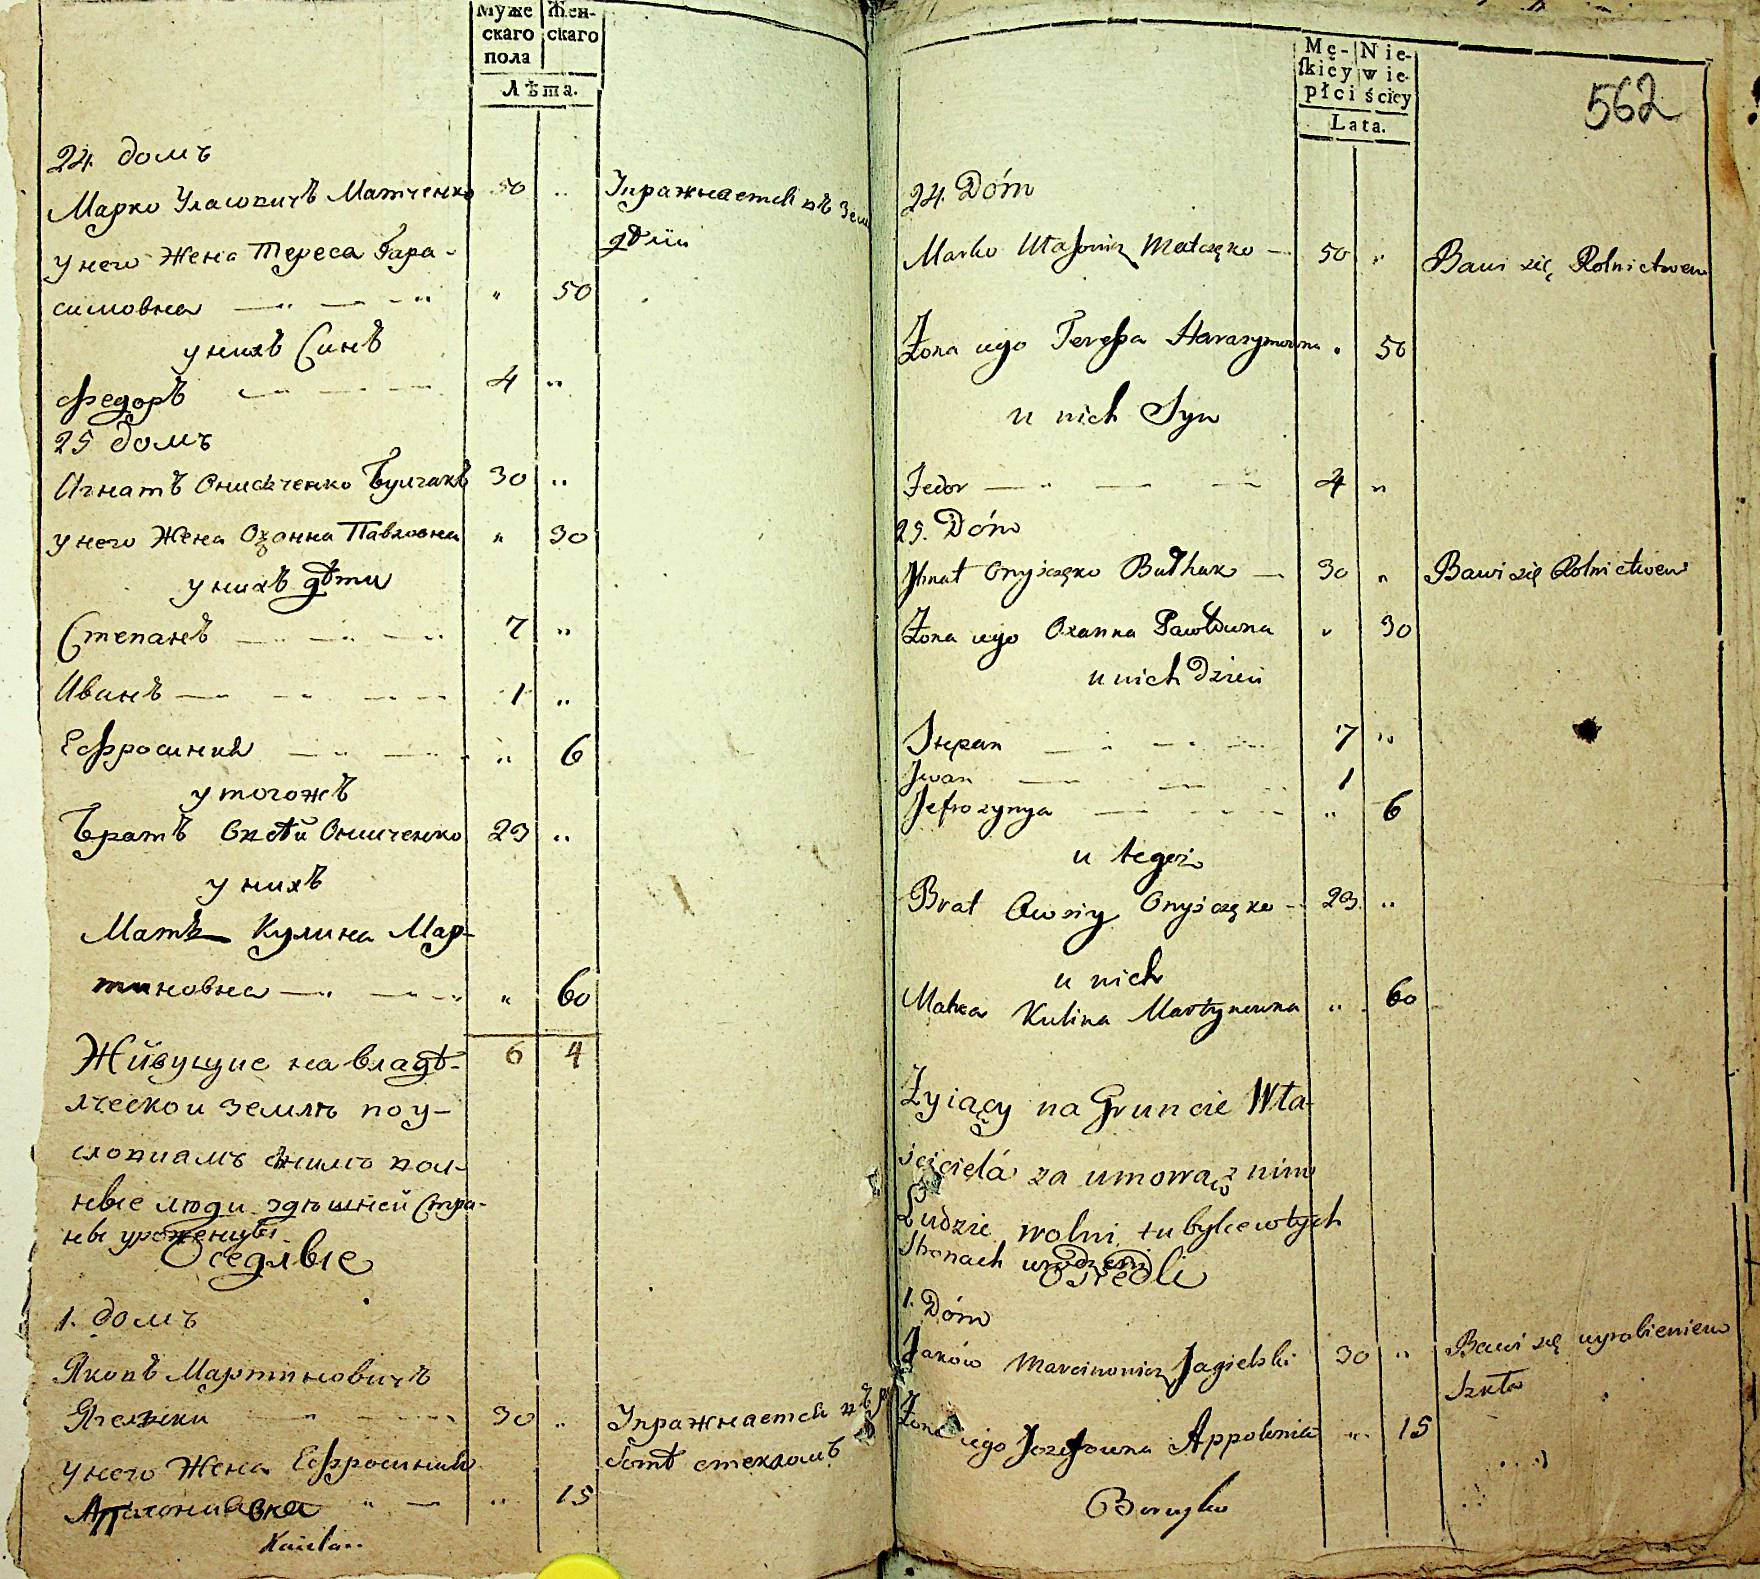 Муже Жен-
скаго скаго
пола
Лѣта.
24. домъ
Марко Уласовичъ Матченко 50 „ Упражнается въ Зем
дѣлiи
у него Жена Тереса Гара-
симовна „ 50
у нихъ Синъ
Федоръ 4 „
25 домъ
Игнатъ Онисченко Булгакъ 30 „
у него Жена Оханна Павловна „ 30
у нихъ дѣти
Степанъ 7 „
Иванъ 1 „
Ефросиния „ 6
у тогожъ
Братъ Овсѣй Онищенко 29 „
у нихъ
Мать Кулина Мар-
тиновна „ 60
6 4
Живущие на владѣ-
лческои землѣ по у-
словиамъ снимъ вол-
ные люди здѣшней Стра-
ны уроженцы
Оседлые
1. домъ
Яковъ Мартиновичъ
Ягелски 30 „ Упражнается въ
ботѣ стекломъ
у него Жена Ефросиния
„ 15
Mę- Nie-
skiey wie-
płci ściey
Lata.
562
24. Dóm
Marko Ułasowicz Matczęko 50 „ Bawi się Rolnictwem
Żona iego Teressa Harasymowna „ 50
u nich Syn
Fedor 4 „
25. Dóm
Ihnat Onyśczęko Bułhak 30 „ Bawi się Rolnictwem
Żona iego Oxanna Pawłowna „ 30
u nich Dzieci
Stepan 7 „
Iwan 1
Jefrozynya „ 6
u tegoż
Brat Owsiy Onyśczęko 29 „
u nich
Matka Kulina Martynowna „ 60
Żyiący na Gruncie Wła-
ściciela za umową z nim
Ludzie wolni, tubylce w tych
Stronach urodzeni
Osiedli
1. Dóm
Jaków Marcinowicz Jagielski 30 „ Bawi się wyrobieniem
Szkła
Żona iego Jozefowna Appolonia „ 15